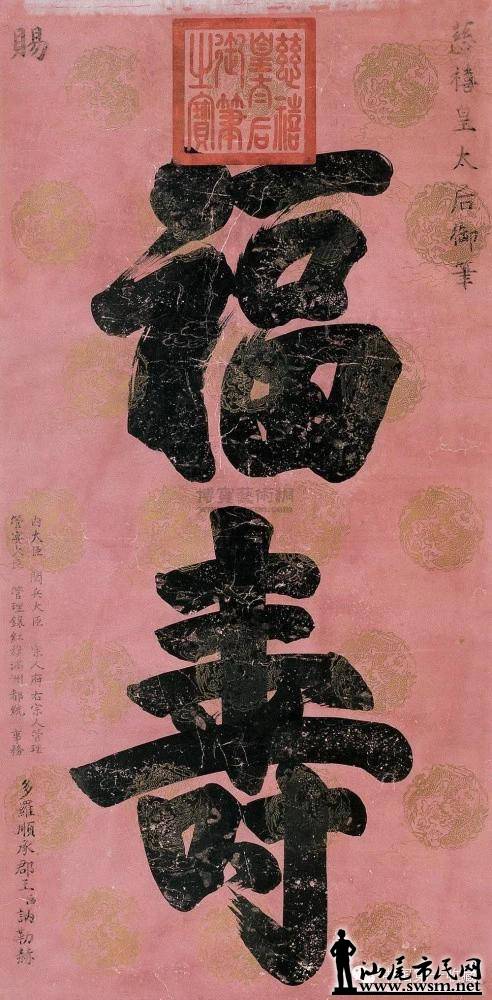 慈禧皇太后御筆
慈禧
皇太后
御筆
之寶
福
壽
賜
內大臣 閱兵大臣 宗人府右宗人管理
管宴大臣 管理鑲紅旗滿洲都統事務
多羅順承郡王訥勒赫
博寶藝術網
汕尾市民网
www.swsm.net